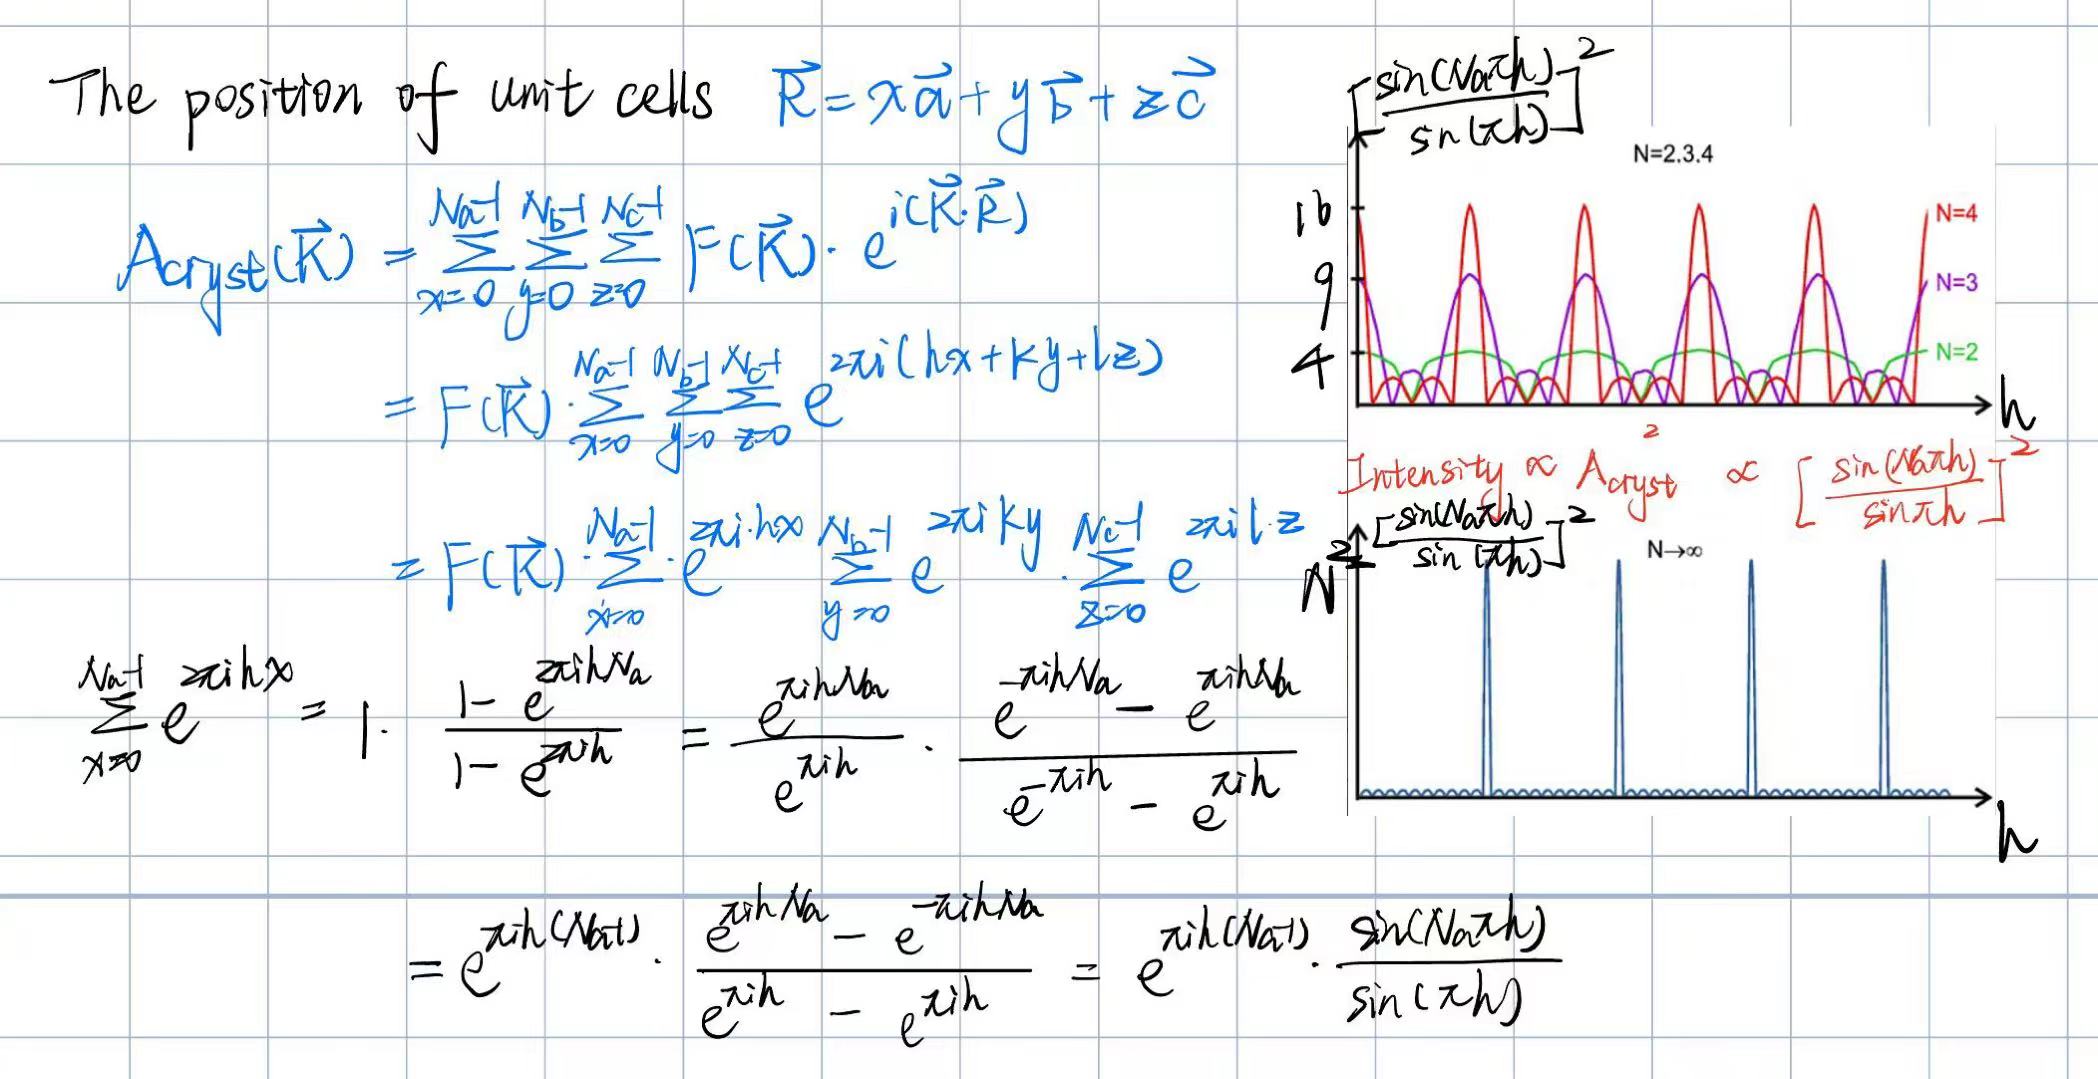 The position of unit cells R⃗ = xa⃗ + yb⃗ + zc⃗
A_cryst(K⃗) = Σ_{x=0}^{Na-1} Σ_{y=0}^{Nb-1} Σ_{z=0}^{Nc-1} F(K⃗) · e^{i(K⃗·R⃗)}
= F(K⃗) · Σ_{x=0}^{Na-1} Σ_{y=0}^{Nb-1} Σ_{z=0}^{Nc-1} e^{2πi(hx+ky+lz)}
= F(K⃗) · Σ_{x=0}^{Na-1} · e^{2πi·hx} Σ_{y=0}^{Nb-1} e^{2πiky} · Σ_{z=0}^{Nc-1} e^{2πil·z}
Σ_{x=0}^{Na-1} e^{2πihx} = 1 · (1 - e^{2πihNa}) / (1 - e^{2πih}) = e^{πihNa} / e^{πih} · (e^{-πihNa} - e^{πihNa}) / (e^{-πih} - e^{πih})
= e^{πih(Na-1)} · (e^{πihNa} - e^{-πihNa}) / (e^{πih} - e^{πih}) = e^{πih(Na-1)} · sin(Naπh) / sin(πh)
[sin(Naπh) / sin(πh)]²
N=2.3.4
16
N=4
9
N=3
4
N=2
h
Intensity ∝ A_cryst² ∝ [sin(Naπh) / sinπh]²
[sin(Naπh) / sin(πh)]²
N→∞
N²
h